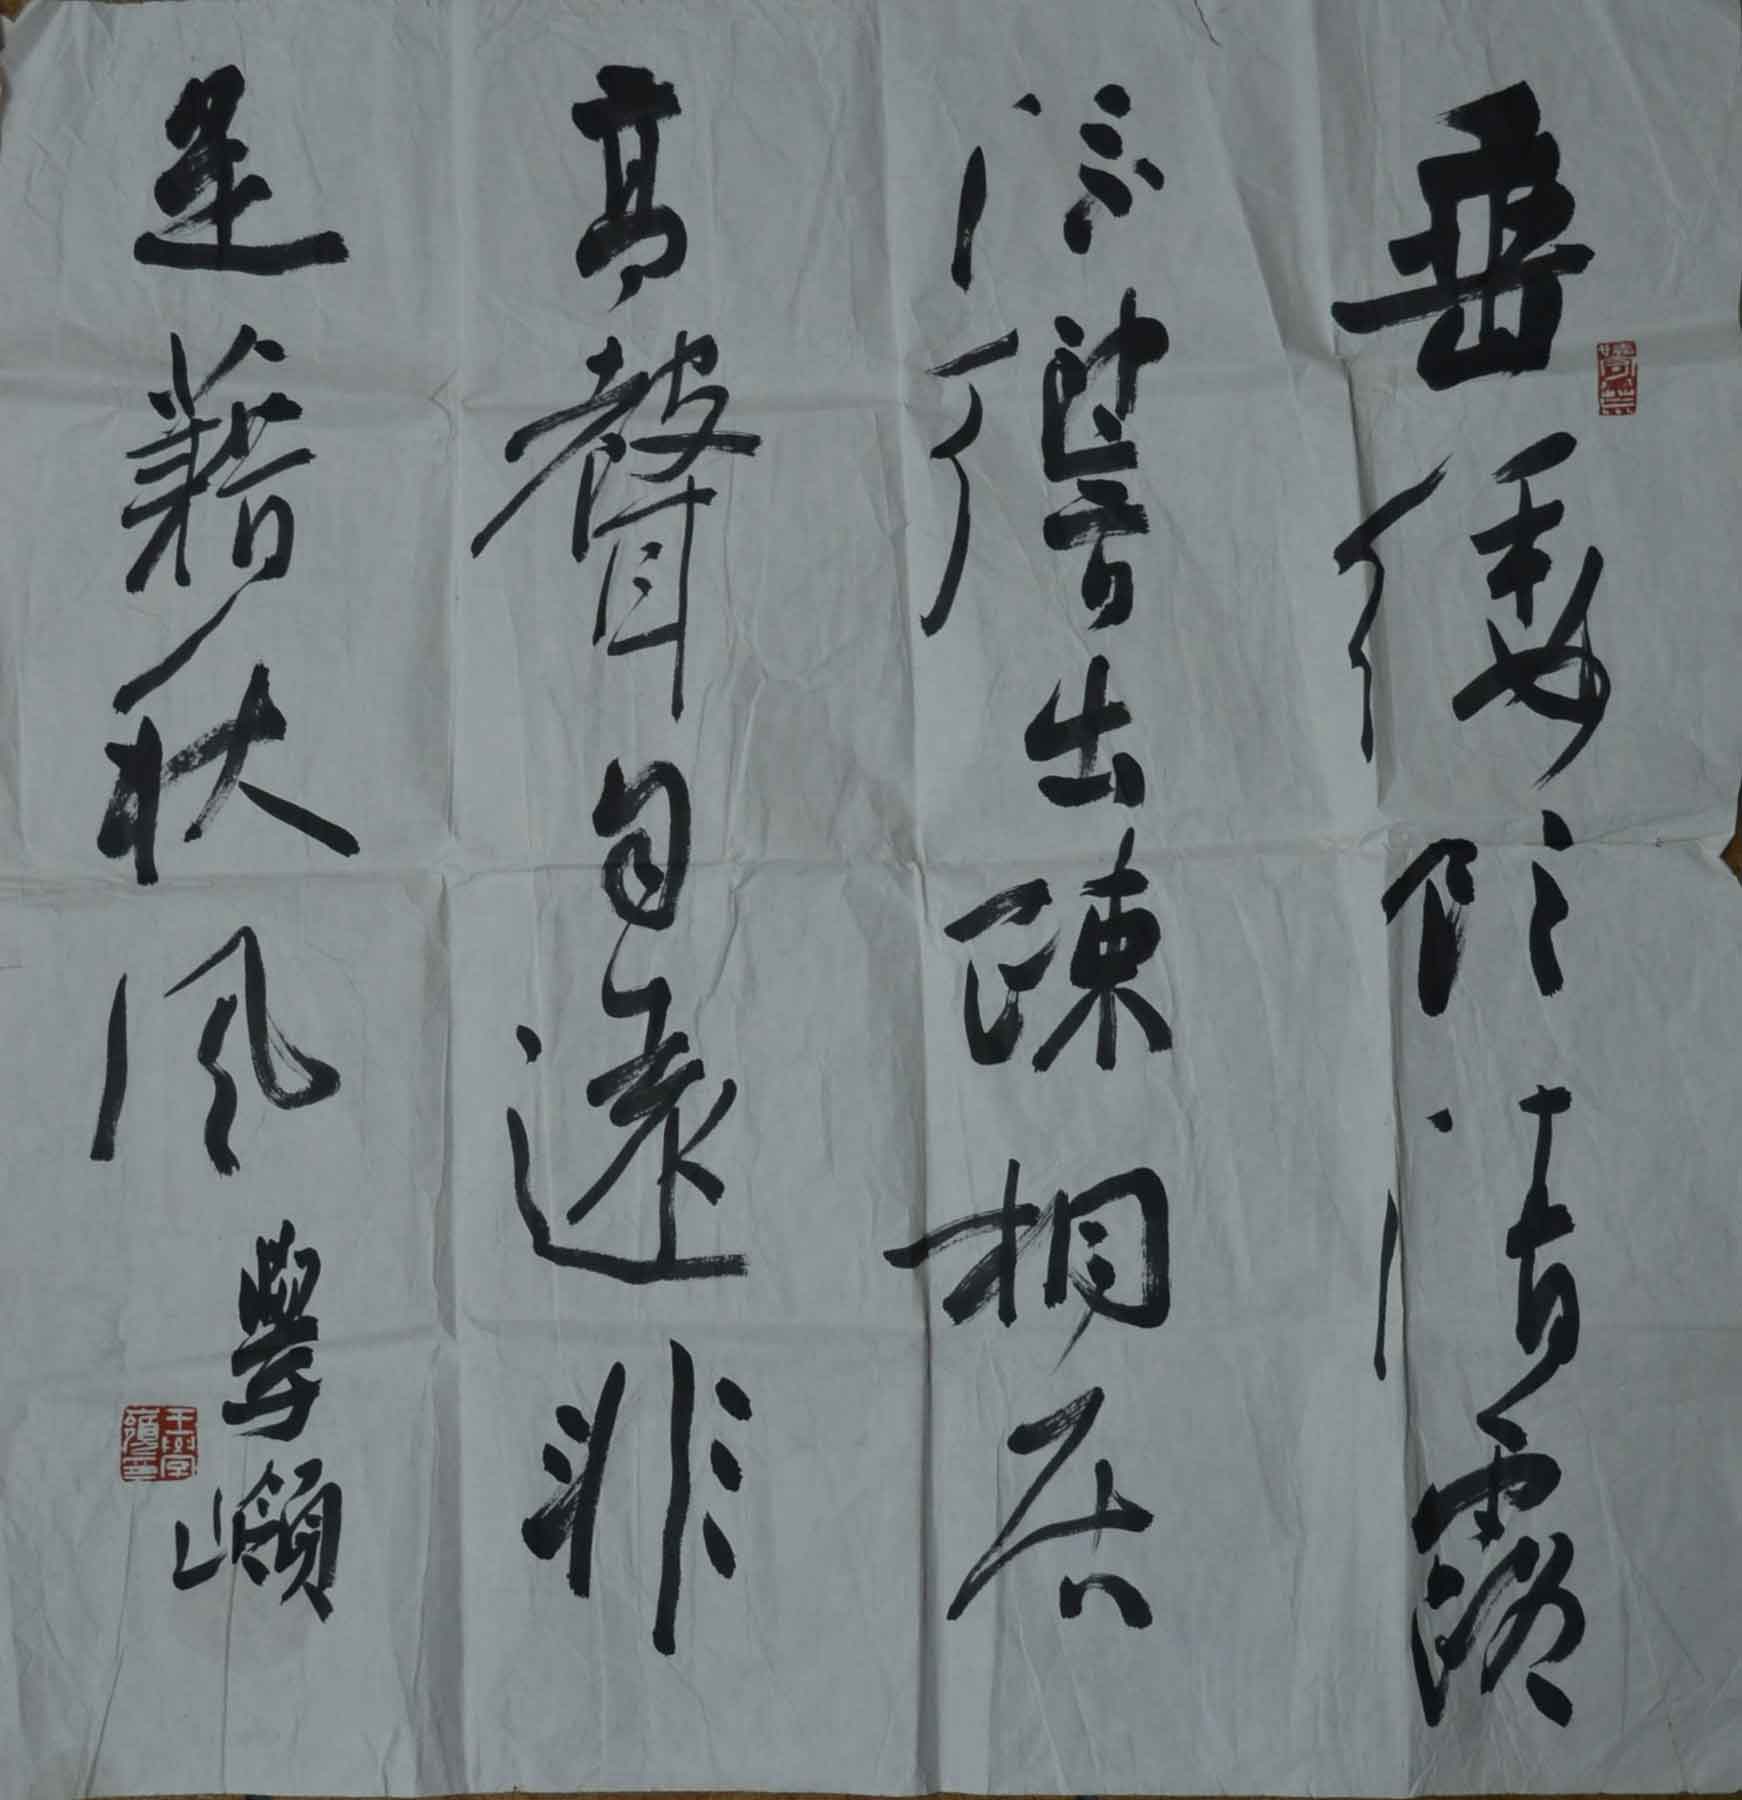 垂緌飲清露
流響出疎桐居
高聲自遠非
是藉秋風 學嶺
王學嶺